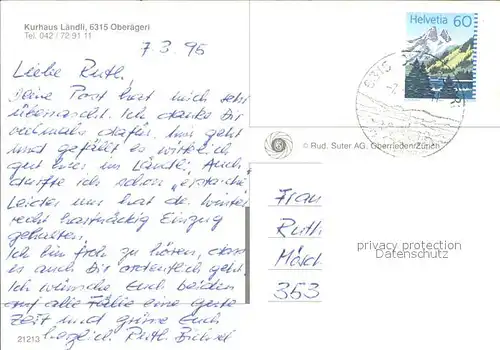 Kurhaus Ländli, 6315 Oberägeri
Tel. 042 / 72 91 11
7. 3. 95
Helvetia 60
6315
Liebe Ruth,
Deine Post hat mich sehr
überrascht. Ich danke Dir
vielmals dafür. Uns geht
und gefällt es wirklich
gut hier im Ländli. Auch
durfte ich schon
Leider uns hat de. Winter
recht hartnäckig Einzug
gehalten.
Ich bin froh zu hören, dass
es auch Dir ordentlich geht.
Ich wünsche Euch beiden
auf alle Fälle eine gute
Zeit und grüsse Euch
herzlich. Ruth.
21213
© Rud. Suter AG, Oberrieden/Zürich
Frau
Ruth
353
privacy protection
Datenschutz